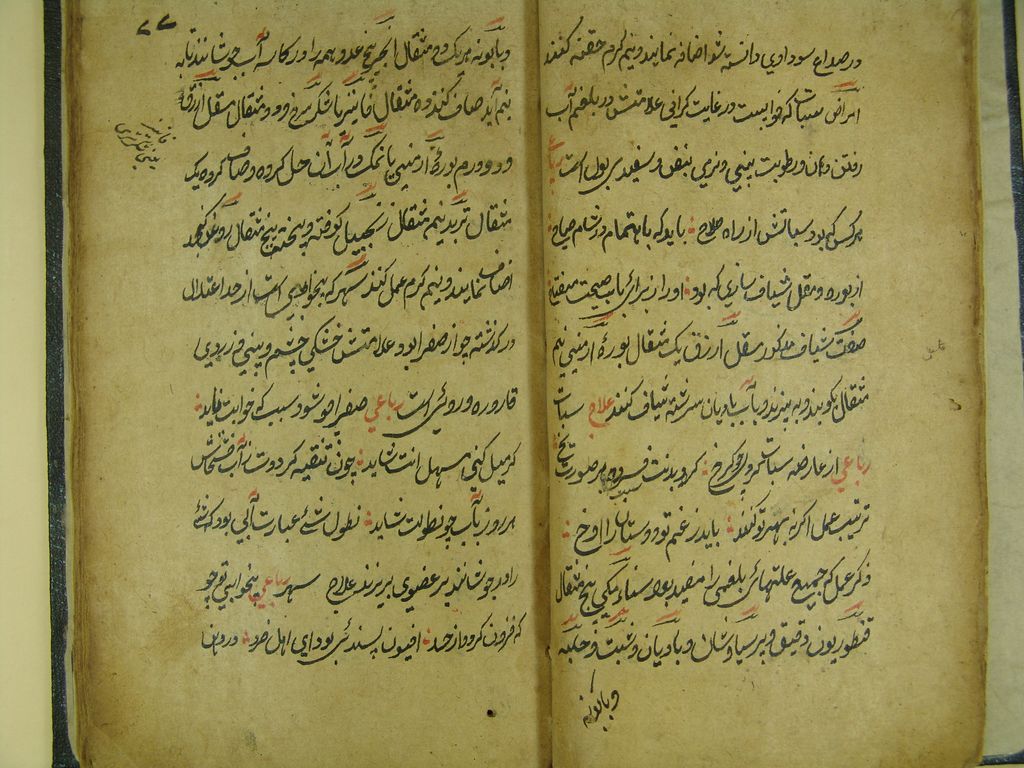 در صداع سوداوی دانسته شد اضافه نمایند و نیم گرم حقنه کنند
امراض سبات که خوابیست در غایت گرانی علامتش در بلغم آب
رفتن دهان و رطوبت بینی و نرمی نبض و سفیدی بول است رباعی
هر کس که بود سباتش از راه صلاح باید که باهتمام در شام و صباح
از بوره و مقل شیاف سازی که بود او را ز برای باب صحت مفتاح
صفت شیاف مذکور مقل ارزق یک مثقال بوره ارمنی نیم
مثقال بکوبند و به بیزند و بآب بادیان سرشته شیاف کنند علاج سبات
رباعی از عارضه سبات کرد بدنت فسرده بر صورت یخ
ترتیب عمل اگر نه بهر تو کنند باید ز غم تو دوستان را آوخ
ذکر عمل که جمیع علتهای بلغمی را مفید بود سناء مکی پنج مثقال
قنطوریون دقیق و پرسیاوشان و بادیان و شبت و حلبه
و بابونه
۲۲
و بابونه هر یک دو مثقال انجیر پنج عدد همه را در کاسه آب جوشانند تا به
نیم آید صاف کنند و ده مثقال فانیذ یا شکر سرخ و دو مثقال مقل ارزق
و دو درم بوره ارمنی یا نمک در آب آن حل کرده و صاف کرده یک
مثقال تربد نیم مثقال زنجبیل کوفته و بیخته پنج مثقال روغن کنجد
اضافه نمایند و نیم گرم عمل کنند سهر که بیخوابی است از حد اعتدال
در گذشته چو از صفرا بود علامتش خشکی چشم و بینی و زردی
قاروره و روئی است رباعی صفرا چو شود سبب که خوابت ناید
گر میل کنی بمسهل انت شاید چون تنقیه کردت ز آب خشخاش
هر روز بآب جو نطولت شاید نطول شئ عبارت آبی بود که شئ
را در جوشانند بر عضوی بریزند علاج سهر رباعی بیخوابی تو چو
که فزون کرد و از حد افیون پسندش بود ای اهل خرد در روغن
فانیذ
یعنی شکر تبرزی